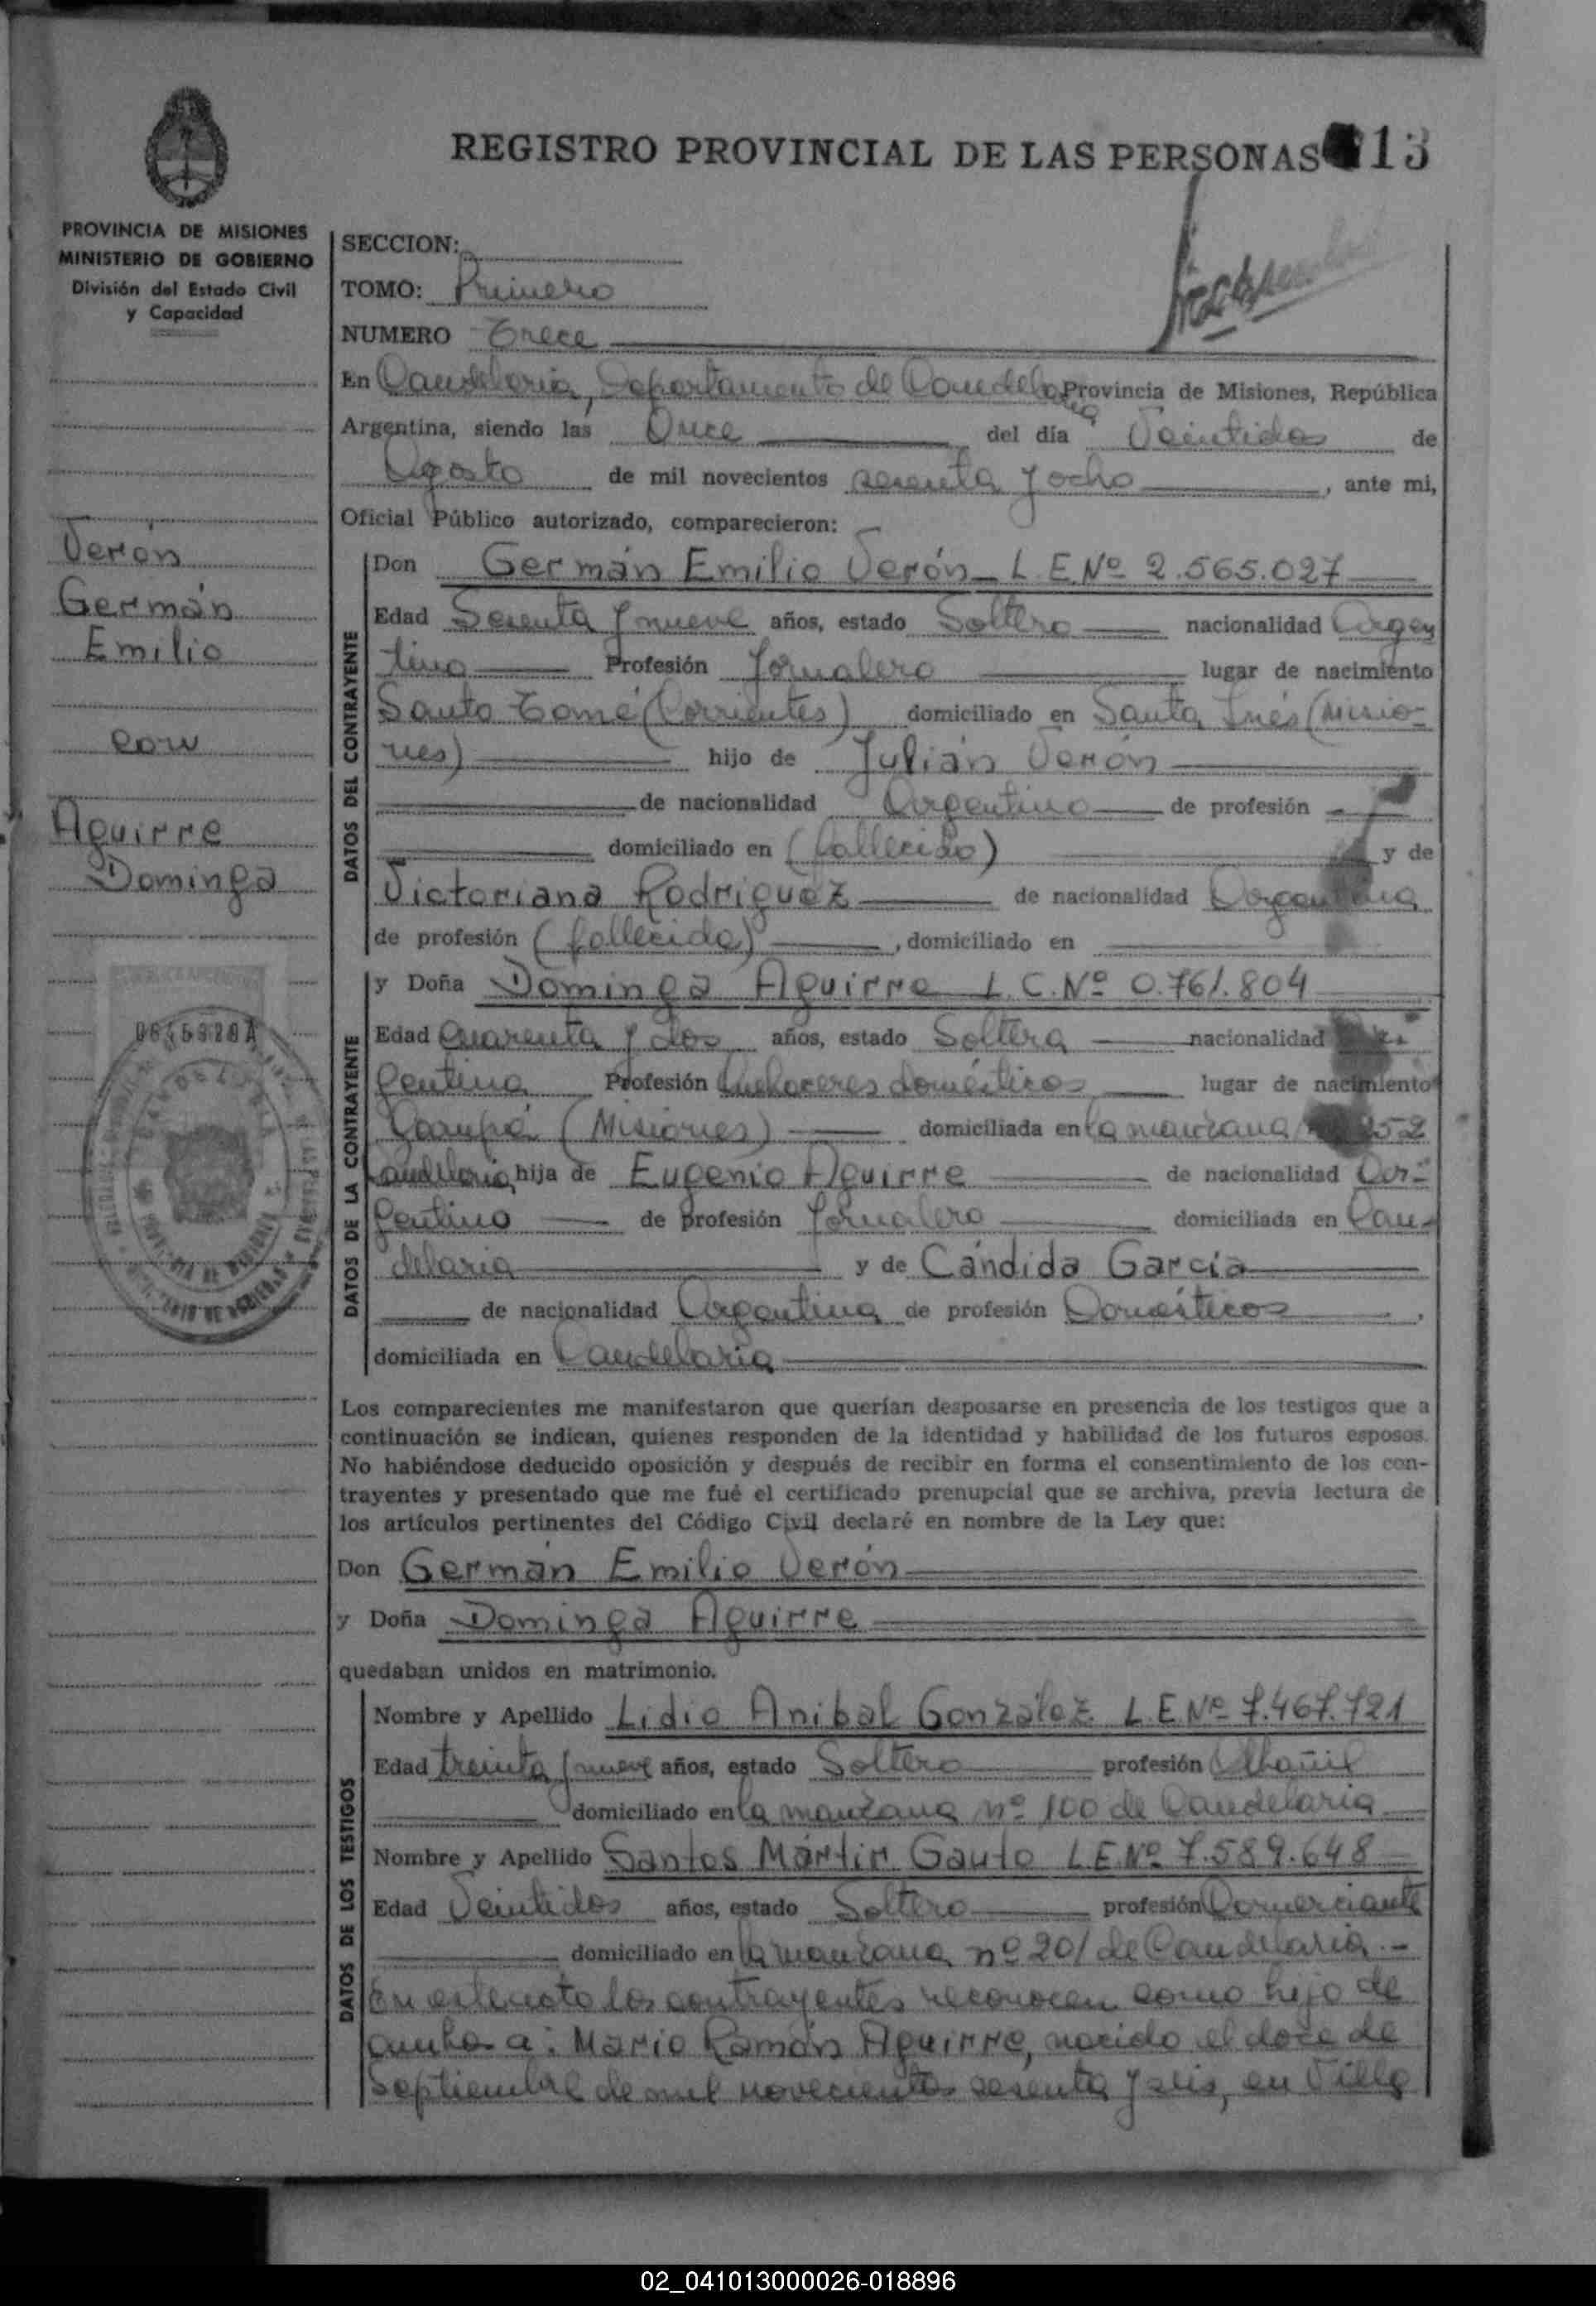 REGISTRO PROVINCIAL DE LAS PERSONAS 13
PROVINCIA DE MISIONES
MINISTERIO DE GOBIERNO
División del Estado Civil
y Capacidad
SECCION:
TOMO: Primero
NUMERO Trece
En Candelaria, Departamento de Candelaria Provincia de Misiones, República
Argentina, siendo las Once del día Veintidos de
Agosto de mil novecientos sesenta y ocho, ante mi,
Oficial Público autorizado, comparecieron:
Verón
Germán
Emilio
con
Aguirre
Dominga
DATOS DEL CONTRAYENTE
Don Germán Emilio Verón L.E.Nº 2.565.027
Edad Sesenta y nueve años, estado Soltero nacionalidad Argen
tino Profesión Jornalero lugar de nacimiento
Santo Tomé (Corrientes) domiciliado en Santa Inés (Misio-
nes) hijo de Julián Verón
de nacionalidad Argentino de profesión
domiciliado en (fallecido) y de
Victoriana Rodriguez de nacionalidad Argentina
de profesión (fallecida), domiciliado en
DATOS DE LA CONTRAYENTE
y Doña Dominga Aguirre L.C.Nº 0.761.804
Edad Cuarenta y dos años, estado Soltera nacionalidad
gentina Profesión Quehaceres domésticos lugar de nacimiento
Garupá (Misiones) domiciliada en la manzana 252
Candelaria hija de Eugenio Aguirre de nacionalidad Ar-
gentino de profesión Jornalero domiciliada en Can-
delaria y de Cándida García
de nacionalidad Argentina de profesión Domésticos,
domiciliada en Candelaria
Los comparecientes me manifestaron que querían desposarse en presencia de los testigos que a
continuación se indican, quienes responden de la identidad y habilidad de los futuros esposos.
No habiéndose deducido oposición y después de recibir en forma el consentimiento de los con-
trayentes y presentado que me fué el certificado prenupcial que se archiva, previa lectura de
los artículos pertinentes del Código Civil declaré en nombre de la Ley que:
Don Germán Emilio Verón
y Doña Dominga Aguirre
quedaban unidos en matrimonio.
DATOS DE LOS TESTIGOS
Nombre y Apellido Lidio Anibal González L.E.Nº 7.467.721
Edad treinta y nueve años, estado Soltero profesión Albañil
domiciliado en la manzana nº 100 de Candelaria
Nombre y Apellido Santos Mártir Gauto L.E.Nº 7.589.648
Edad Veintidos años, estado Soltero profesión Comerciante
domiciliado en la manzana nº 201 de Candelaria.-
En este acto los contrayentes reconocen como hijo de
ambos a: Mario Ramón Aguirre, nacido el doce de
Septiembre de mil novecientos sesenta y seis, en Villa
02_041013000026-018896